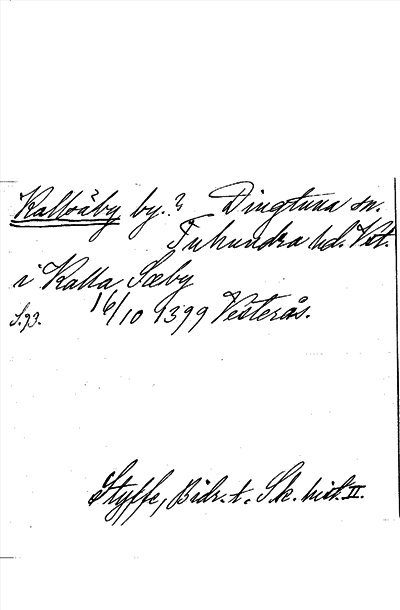 Kallsäby by.? Dingtuna sn.
Tuhundra hd. Vst.
i Kalla Sæby
S.93. 16/10 1399 Vesterås.
Styffe, Bidr. t. Sk. hist. II.